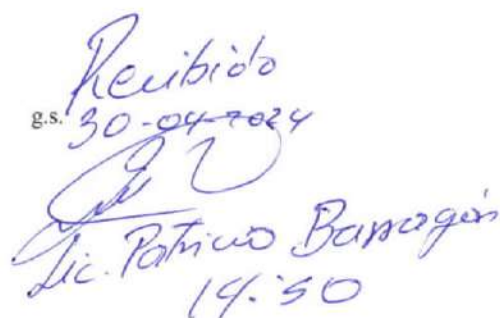 Recibido
g.s. 30-04-2024
Lic. Patricio Barragán
14:50